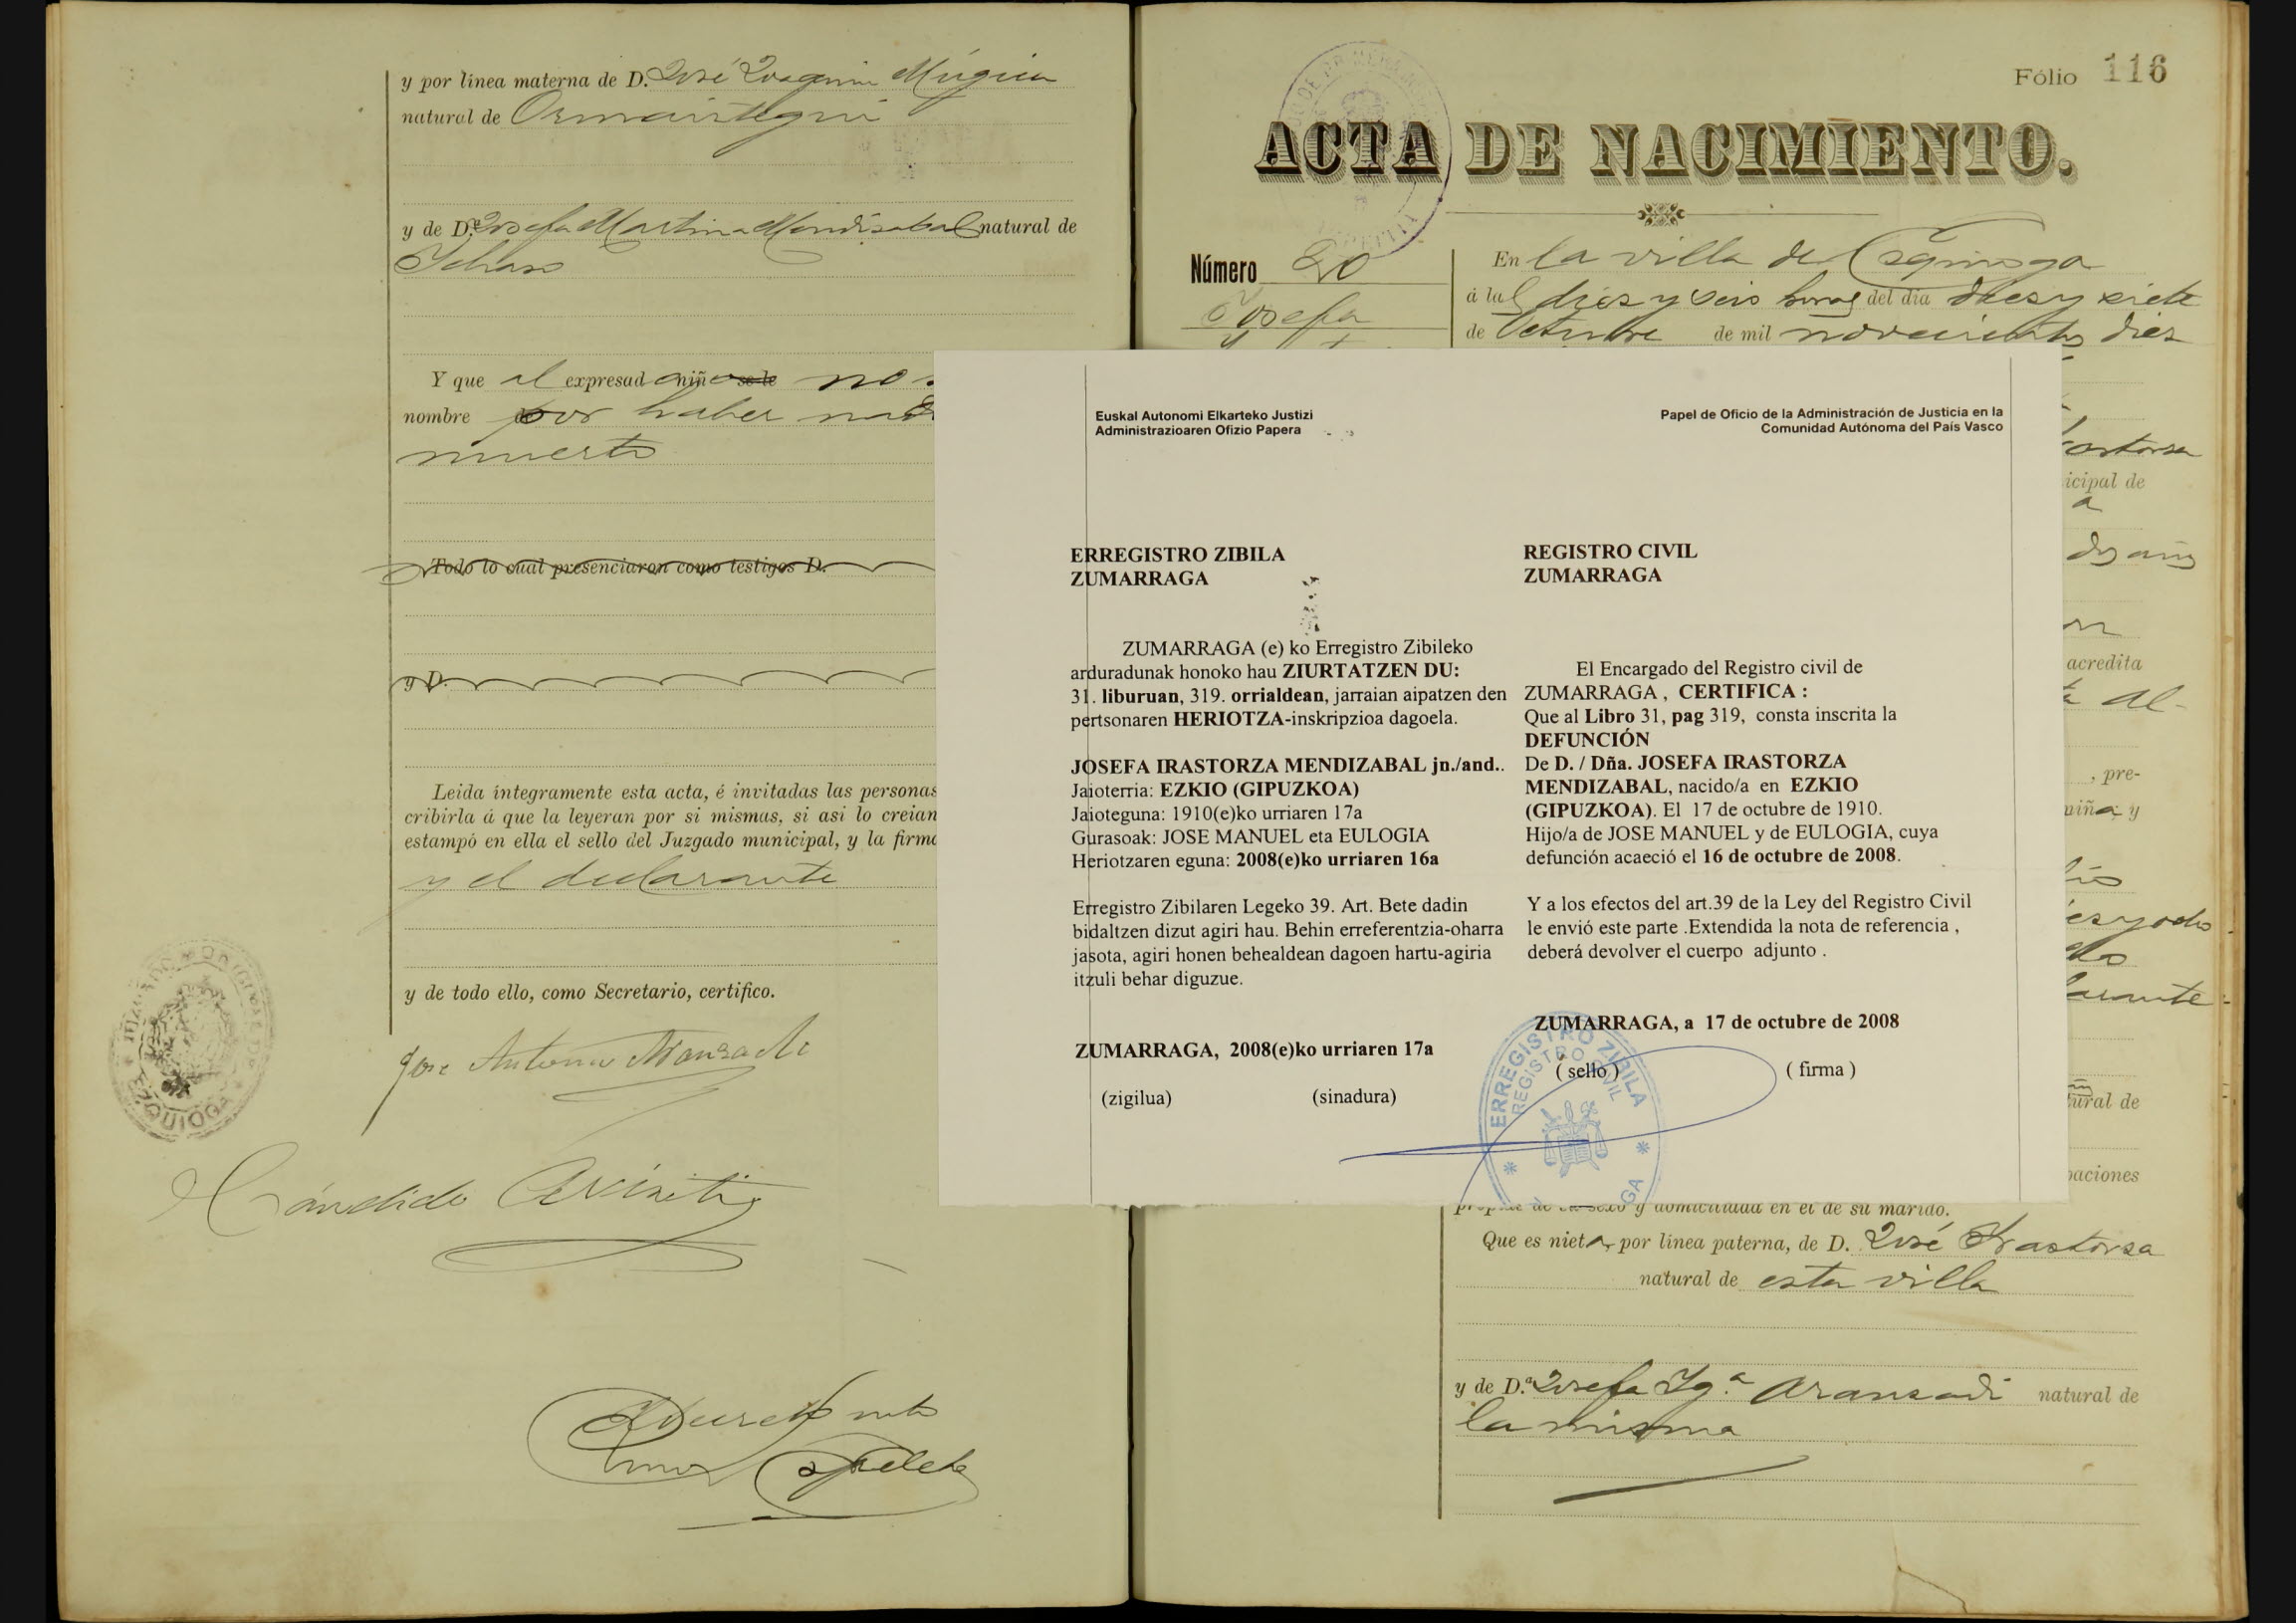 y por línea materna de D. José Joaquin Múgica
natural de Ormaiztegui
y de D.ª Josefa Martina Mendizabal natural de
Ichaso
Y que al expresado niño se le no
nombre por haber
muerto
Todo lo cual presenciaron como testigos D.
y D.
Leida íntegramente esta acta, é invitadas las personas
cribirla á que la leyeran por si mismas, si asi lo creian
estampó en ella el sello del Juzgado municipal, y la firm
y el declarante
y de todo ello, como Secretario, certifico.
José Antonio Aranzadi
Cándido
Fólio 116
ACTA DE NACIMIENTO.
Número 20
Josefa
En la villa de Ezquioga
á las diez y seis horas del dia diez y siete
de Octubre de mil novecientos diez
Euskal Autonomi Elkarteko Justizi
Administrazioaren Ofizio Papera
Papel de Oficio de la Administración de Justicia en la
Comunidad Autónoma del País Vasco
ERREGISTRO ZIBILA
ZUMARRAGA
ZUMARRAGA (e) ko Erregistro Zibileko
arduradunak honoko hau ZIURTATZEN DU:
31. liburuan, 319. orrialdean, jarraian aipatzen den
pertsonaren HERIOTZA-inskripzioa dagoela.
JOSEFA IRASTORZA MENDIZABAL jn./and..
Jaioterria: EZKIO (GIPUZKOA)
Jaioteguna: 1910(e)ko urriaren 17a
Gurasoak: JOSE MANUEL eta EULOGIA
Heriotzaren eguna: 2008(e)ko urriaren 16a
Erregistro Zibilaren Legeko 39. Art. Bete dadin
bidaltzen dizut agiri hau. Behin erreferentzia-oharra
jasota, agiri honen behealdean dagoen hartu-agiria
itzuli behar diguzue.
ZUMARRAGA, 2008(e)ko urriaren 17a
(zigilua) (sinadura)
REGISTRO CIVIL
ZUMARRAGA
El Encargado del Registro civil de
ZUMARRAGA , CERTIFICA :
Que al Libro 31, pag 319, consta inscrita la
DEFUNCIÓN
De D. / Dña. JOSEFA IRASTORZA
MENDIZABAL, nacido/a en EZKIO
(GIPUZKOA). El 17 de octubre de 1910.
Hijo/a de JOSE MANUEL y de EULOGIA, cuya
defunción acaeció el 16 de octubre de 2008.
Y a los efectos del art.39 de la Ley del Registro Civil
le envió este parte .Extendida la nota de referencia ,
deberá devolver el cuerpo adjunto .
ZUMARRAGA, a 17 de octubre de 2008
( sello ) ( firma )
ERREGISTRO ZIBILA
REGISTRO CIVIL
icipal de
a
dos años
acredita
, pre-
niña y
ural de
paciones
propias de su sexo y domiciliada en el de su marido.
Que es nieta por línea paterna, de D. José Irastorza
natural de esta villa
y de D.ª Josefa Ig.ª Aranzadi natural de
la misma